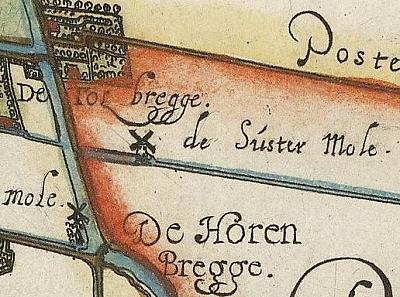 Poste
De Tol bregge.
de Súster Mole.
mole.
De Horen
Bregge.